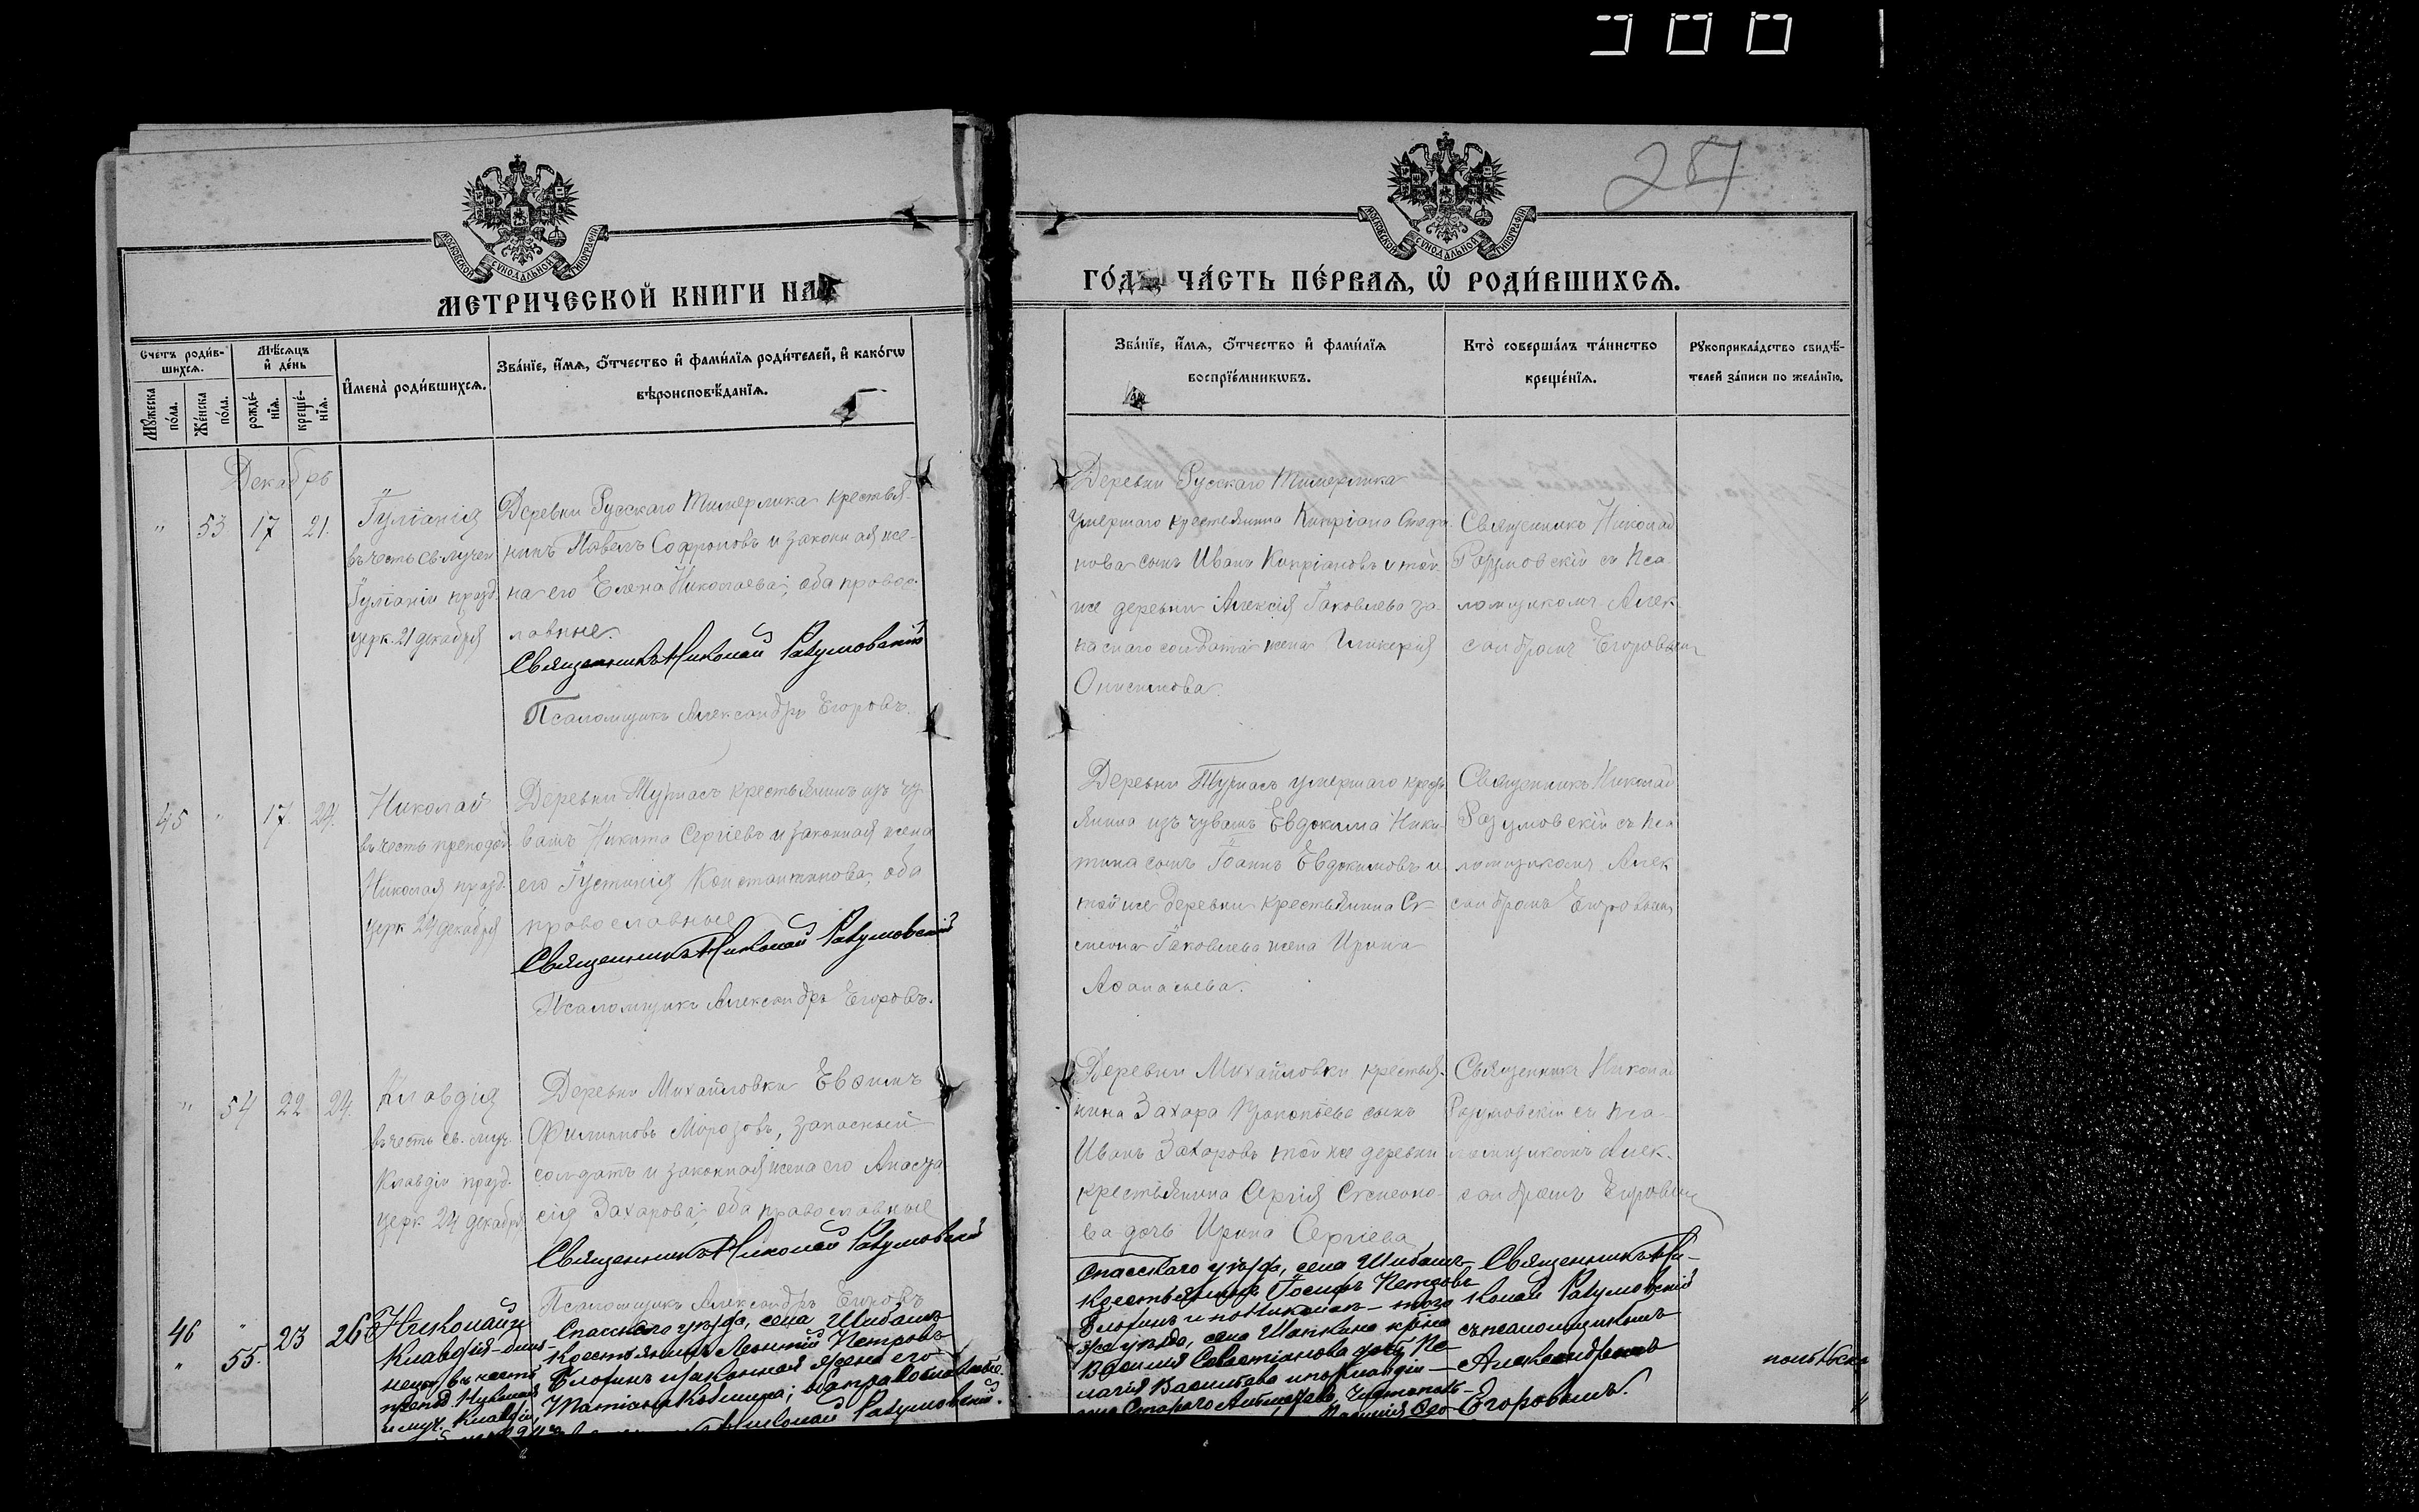 287
МОСКОВСКОЙ СУНОДАЛЬНОЙ ТИПОГРАФІИ
МОСКОВСКОЙ СУНОДАЛЬНОЙ ТИПОГРАФІИ
МЕТРИЧЕСКОЙ КНИГИ НА
ГО́ДЪ, ЧА́СТЬ ПЕ́РВАЯ, Ѡ҆ РОДИ́ВШИХСЯ.
Счетъ роди́в-
шихся.
Мѹжеска
по́ла.
Же́нска
по́ла.
Мѣ́сяцъ
и҆ де́нь
рожде́-
нїя.
креще́-
нїя.
И҆мена̀ роди́вшихся.
Зва́нїе, и҆́мя, ѻ҆́тчество и҆ фами́лїя роди́телей, и҆ како́гѡ
вѣроисповѣ́данїя.
Зва́нїе, и҆́мя, ѻ҆́тчество и҆ фами́лїя
воспрїе́мникѡвъ.
Кто̀ соверша́лъ та́инство
креще́нїя.
Рѹкоприкла́дство свидѣ́-
телей за́писи по жела́нїю.
Декабрь
" 53 17 21.
Іуліанія
въ честь св. мучен
Іуліаніи празд.
церк. 21 декабря
Деревни Русскаго Тимерлика крестья-
нинъ Павелъ Софроновъ и законная же-
на его Елена Николаева; оба правос-
лавные.
Священникъ Николай Разумовскій
Псаломщикъ Александръ Егоровъ.
Деревни Русскаго Тимерлика
умершаго крестьянина Кипріана Стефа-
нова сынъ Иванъ Кипріановъ и той-
же деревни Алексія Іаковлева за-
паснаго солдата жена Гликерія
Онисимова.
Священникъ Николай
Разумовскій съ пса-
ломщикомъ Алек-
сандромъ Егоровымъ
45 " 17. 24.
Николай
въ честь преподоб
Николая празд.
церк 24 декабря
Деревни Турнасъ крестьянинъ изъ чу-
вашъ Никита Сергіевъ и законная жена
его Іустинія Константинова, оба
православные
Священникъ Николай Разумовскій
Псаломщикъ Александръ Егоровъ.
Деревни Турнасъ умершаго крест
янина изъ чувашъ Евдокима Ники-
тина сынъ Іоаннъ Евдокимовъ и
той же деревни крестьянина Си-
меона Іаковлева жена Ирина
Аѳанасьева.
Священникъ Николай
Разумовскій съ пса
ломщикомъ Алек
сандромъ Егоровымъ
" 54 22 24.
Клавдія
въ честь св. муч.
Клавдіи празд.
церк 24 декабря
Деревни Михайловки Евѳимъ
Филипповъ Морозовъ, запасный
солдатъ и законная жена его Анаста
сія Захарова; оба православные
Священникъ Николай Разумовскій
Псаломщикъ Александръ Егоровъ
Деревни Михайловки крестья-
нина Захара Прокопьева сынъ
Иванъ Захаровъ той же деревни
крестьянина Сергія Симеоно-
ва дочь Ирина Сергіева
Священникъ Николай
Разумовскій съ пса-
ломщикомъ Алек-
сандромъ Егоровымъ
46 "
" 55. 23 26
Николай и
Клавдія - близ-
нецы въ честь
препод. Николая
и муч. Клавдіи,
Спасскаго уѣзда, села Шибаши
крестьянинъ Леонтій Петровъ
Блохинъ и законная жена его
Татіана Козмина; оба православные.
Николай Разумовскій.
Спасскаго уѣзда, села Шибаши
крестьянинъ Іосифъ Петровъ
Блохинъ и по Николаѣ - того
же уѣзда, села
Василія Севастіанова дочь Пе-
лагія Васильева и по Клавдіи -
Священникъ Ни-
колай Разумовскій
съ псаломщикомъ
Александромъ
Егоровымъ.